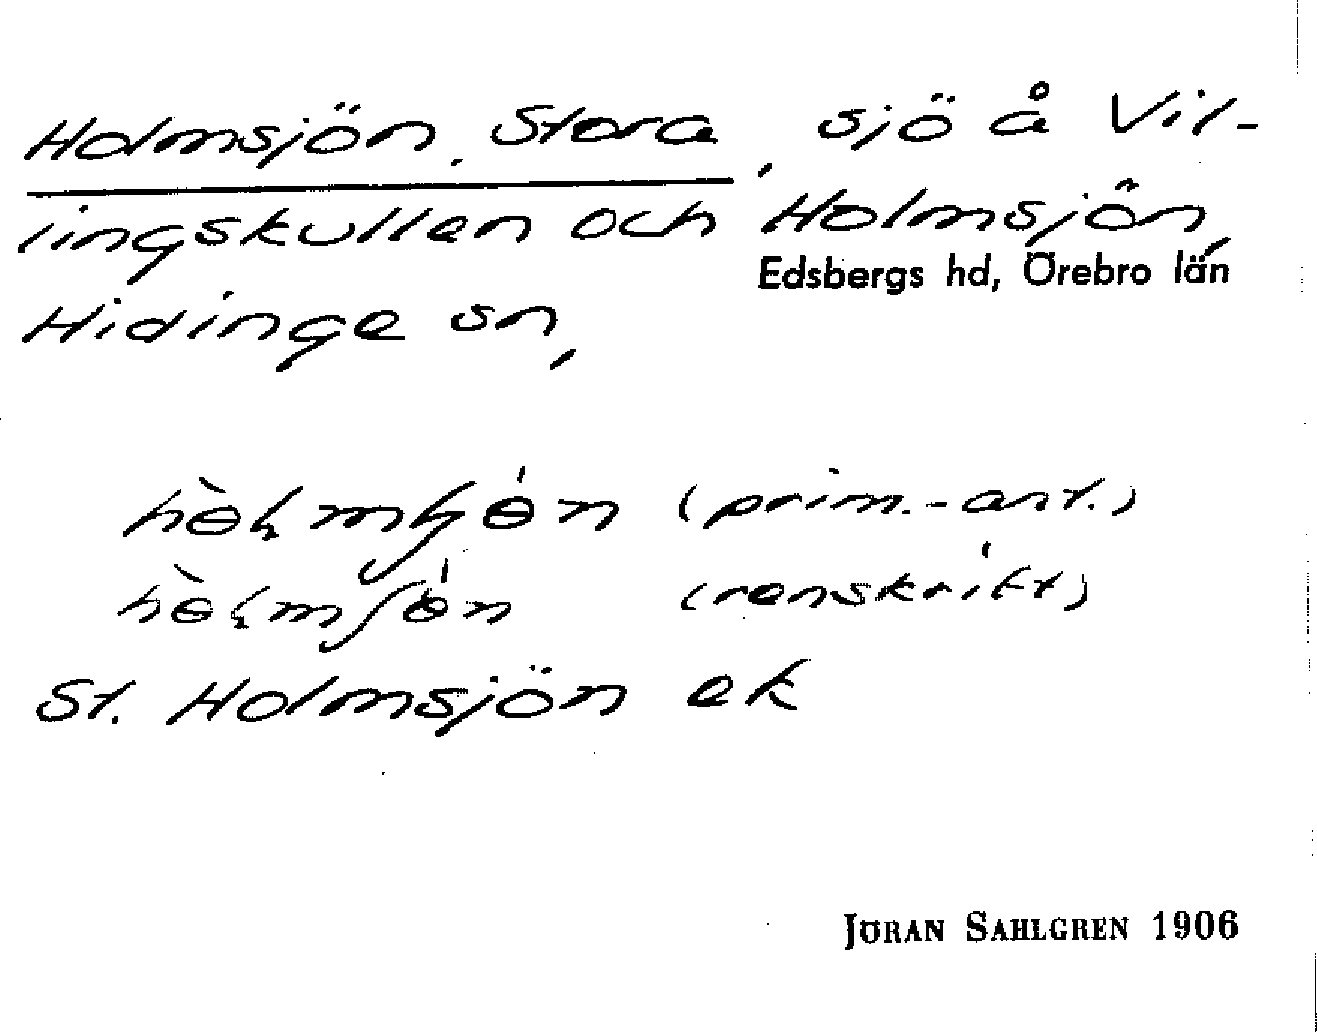 Holmsjön, Stora, sjö å Vil-
lingskullen och Holmsjön,
Hidinge sn, Edsbergs hd, Örebro län
(prim.-ant.)
(renskrift)
St. Holmsjön ek
JÖRAN SAHLGREN 1906